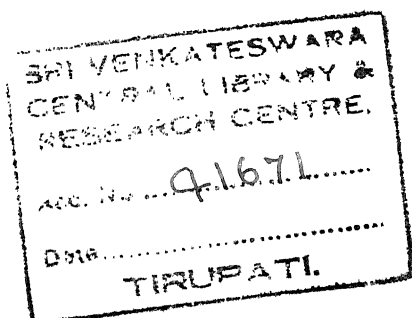 SRI VENKATESWARA
CENTRAL LIBRARY &
RESEARCH CENTRE.
Acc. No.... 41671.......
Date...........................
TIRUPATI.